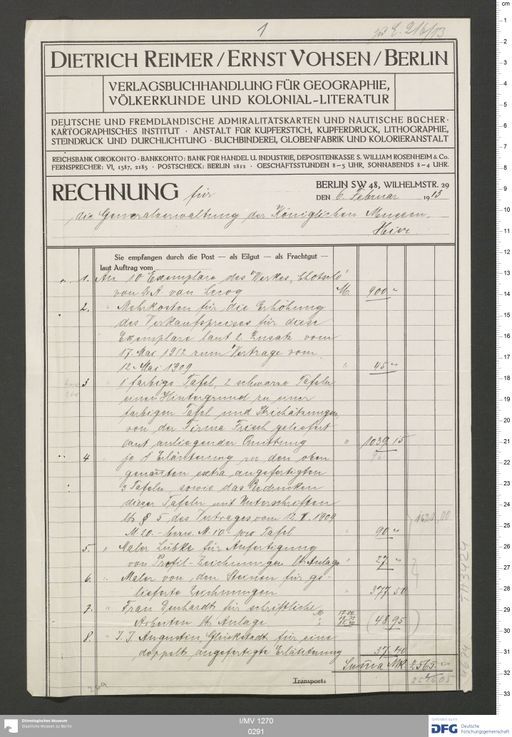 1
DIETRICH REIMER / ERNST VOHSEN / BERLIN
VERLAGSBUCHHANDLUNG FÜR GEOGRAPHIE,
VÖLKERKUNDE UND KOLONIAL-LITERATUR
DEUTSCHE UND FREMDLÄNDISCHE ADMIRALITÄTSKARTEN UND NAUTISCHE BÜCHER ·
KARTOGRAPHISCHES INSTITUT · ANSTALT FÜR KUPFERSTICH, KUPFERDRUCK, LITHOGRAPHIE,
STEINDRUCK UND DURCHLICHTUNG · BUCHBINDEREI, GLOBENFABRIK UND KOLORIERANSTALT
REICHSBANK GIROKONTO · BANKKONTO: BANK FÜR HANDEL U. INDUSTRIE, DEPOSITENKASSE S. WILLIAM ROSENHEIM & Co.
FERNSPRECHER: VI, 1587, 2185 · POSTSCHECK: BERLIN 2812 · GESCHÄFTSSTUNDEN 8–5 UHR, SONNABENDS 8–4 UHR.
RECHNUNG für
BERLIN SW 48, WILHELMSTR. 29
DEN 6. Februar 1913
die Generalverwaltung der Königlichen Museen.
Hier
Sie empfangen durch die Post — als Eilgut — als Frachtgut —
laut Auftrag vom
1. An 10 Exemplare des Werkes „Chotscho“
von A. van Lecoq M. 900.–
2. " Mehrkosten für die Erhöhung
des Verkaufspreises für diese
Exemplare laut 2. Zusatz vom
17. Mai 1912 zum Vertrage vom
12. Mai 1909 " 45.–
3 " 1 farbige Tafel, 2 schwarze Tafeln
einen Hintergrund zu einer
farbigen Tafel und
von der Firma Frisch geliefert
laut anliegender Quittung " 1039.15
4 " je 1 Erläuterung zu den oben
genannten extra angefertigten
3 Tafeln, sowie das Bedrucken
dieser Tafeln mit Unterschriften
lt. § 5 des Vertrages vom 12. V. 1909
M 20.– bezw. M 10.– pro Tafel " 90.–
5. " Maler Lübke für Anfertigung
von Profil-Zeichnungen lt. Anlage " 27.–
6. " Maler von den Steinen für ge-
lieferte Zeichnungen " 377.50
7. " Frau Gerhardt für schriftliche
Arbeiten lt. Anlage 48.95
8. " J. J. Augustin, Glückstadt für eine
doppelt angefertigte Erläuterung 37.40
Summa Mk. 2565.–
Transport:
I/MV 1270
0291
Ethnologisches Museum
Staatliche Museen zu Berlin
GEFÖRDERT DURCH
DFG Deutsche
Forschungsgemeinschaft
cm
1
2
3
4
5
6
7
8
9
10
11
12
13
14
15
16
17
18
19
20
21
22
23
24
25
26
27
28
29
30
31
32
33